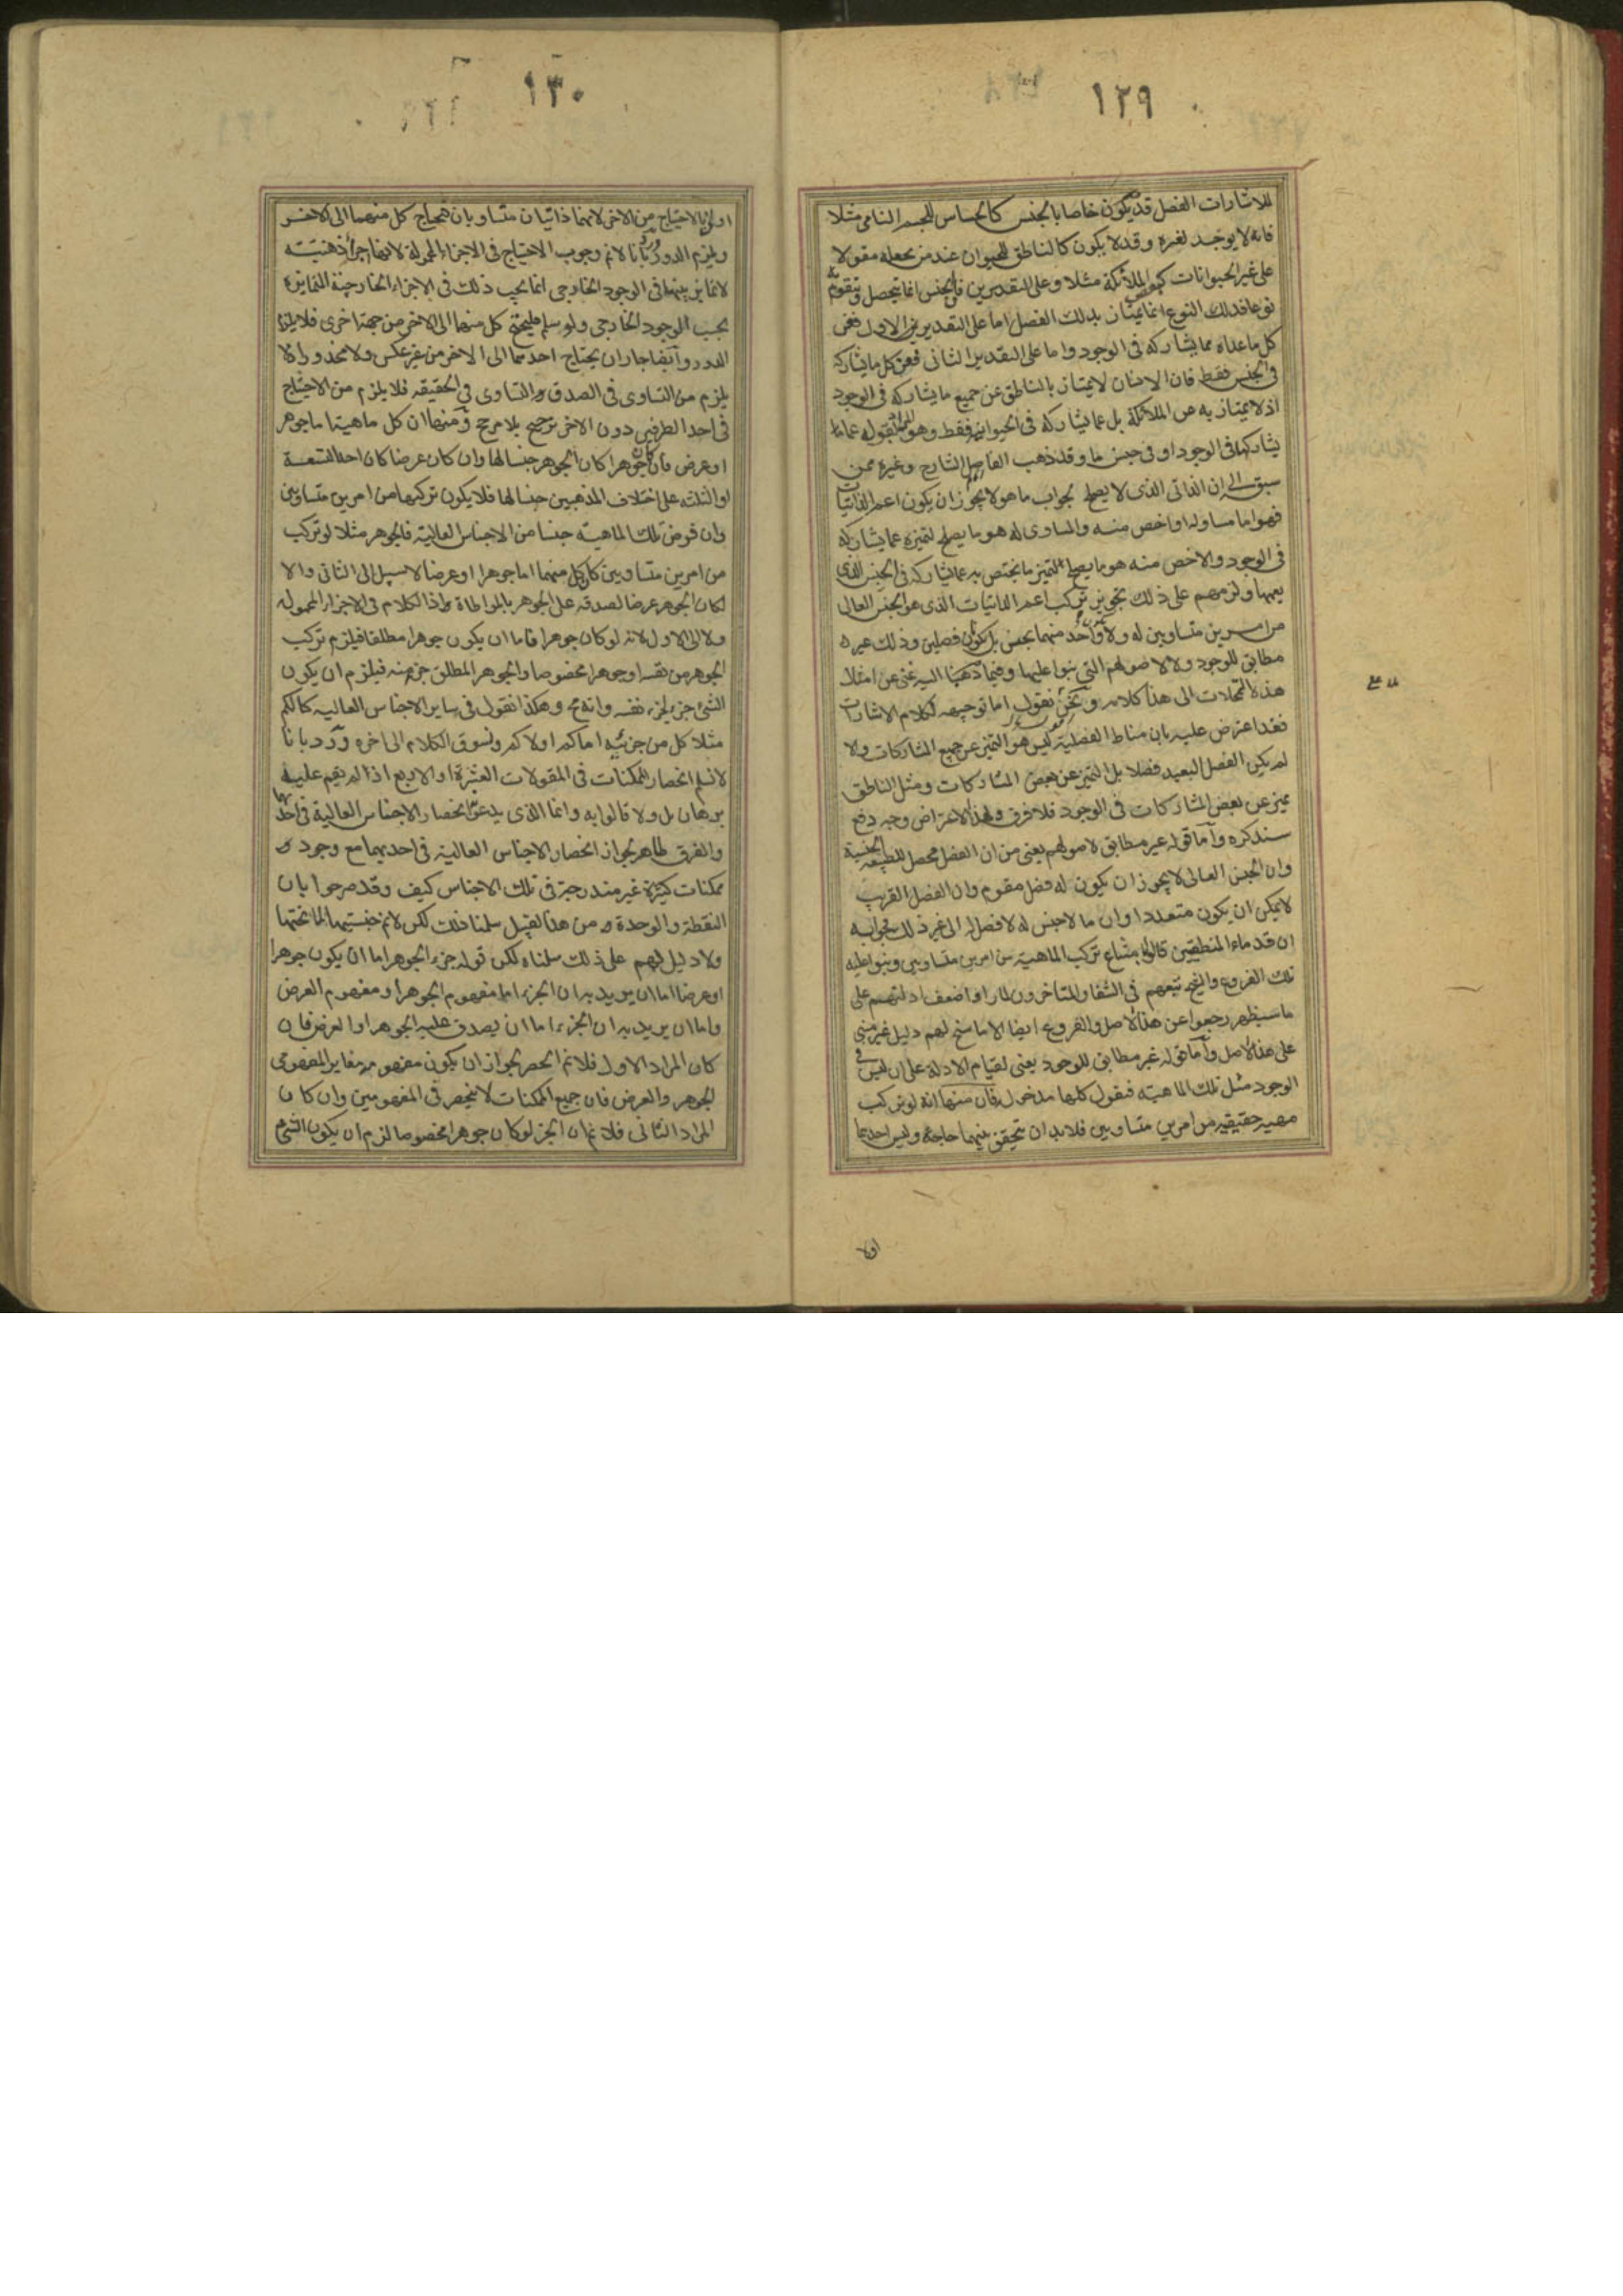 ١٢٩
للاشارات الفصل قد يكون خاصا بالجنس كالحساس للجسم النامى مثلا
فانه لا يوجد لغيره وقد لا يكون كالناطق للحيوان عند من يجعله مقولا
على غير الحيوانات كبعض الملائكة مثلا وعلى التقديرين فالجنس انما يتحصل ويتقوم به
نوعا فذلك النوع انما يمتاز بذلك الفصل اما على التقدير الاول فعن
كل ما عداه مما يشاركه فى الوجود واما على التقدير الثانى فعن كل ما يشاركه
فى الجنس فقط فان الانسان لا يمتاز بالناطق عن جميع ما يشاركه فى الوجود
اذ لا يمتاز به عن الملائكة بل عما يشاركه فى الحيوانية فقط وهو المراد بقوله عما
يشاركها فى الوجود او فى جنس ما وقد ذهب الفاضل الشارح وغيره ممن
سبق الى ان الذاتى الذى لا يصلح لجواب ما هو لا يجوز ان يكون اعم الذاتيات
فهو اما مساو له او اخص منه والمساوى له هو ما يصلح لتميزه عما يشاركه
فى الوجود والاخص منه هو ما يصلح لتميز ما يختص به عما يشاركه فى الجنس الذى
يعمها ولزمهم على ذلك تجويز تركب اعم الذاتيات الذى هو الجنس العالى
من امرين متساويين له ولا واحد منهما بجنس بل يكون فصلين وذلك غير
مطابق للوجود ولا لاصولهم التى بنوا عليها وفيما ذهبنا اليه غنى عن امثال
هذه التمحلات الى هذا كلامه ونحن نقول اما توجيهه لكلام الاشارات
فقد اعترض عليه بان مناط الفصلية ليس هو التميز عن جميع المشاركات والا
لم يكن الفصل البعيد فصلا بل التميز عن بعض المشاركات ومثل الناطق
يميز عن بعض المشاركات فى الوجود فلا فرق ولهذا الاعتراض وجه دفع
سنذكره وآما قوله غير مطابق لاصولهم يعنى من ان الفصل محصل للطبيعة الجنسية
وان الجنس العالى لا يجوز ان يكون له فصل مقوم وان الفصل القريب
لا يمكن ان يكون متعددا وان ما لا جنس له لا فصل له الى غير ذلك فجوابه
ان قدماء المنطقيين قالوا بامتناع تركب الماهية من امرين متساويين وبنوا عليه
تلك الفروع والشيخ تبعهم فى الشفا والمتاخرون لما راوا ضعف ادلتهم على
ما سيظهر رجعوا عن هذا الاصل والفروع ايضا الا ما سنح لهم دليل غير مبنى
على هذا الاصل وآما قوله غير مطابق للوجود يعنى لقيام الادلة على ان ليس فى
الوجود مثل تلك الماهية فنقول كلها مدخولة فان منها انه لو تركب
مهية حقيقيه من امرين متساويين فلا بد ان يتحقق بينهما حاجة وليس احدهما
اولا
١٣٠
اولى بالاحتياج من الاخر لانهما ذاتيان متساويان فيحتاج كل منهما الى الاخر
ويلزم الدور ورد بانا لا نم وجوب الاحتياج فى الاجزاء المحمولة لانها اجزاء ذهنيته
لا تمايز بينها فى الوجود الخارجى انما يجب ذلك فى الاجزاء الخارجية المتمايزة
بحسب الوجود الخارجى ولو سلم فليحتج كل منهما الى الاخر من جهة اخرى فلا يلزم
الدور وآيضا جاز ان يحتاج احدهما الى الاخر من غير عكس ولا محذور اذ لا
يلزم من التساوى فى الصدق التساوى فى الحقيقه فلا يلزم من الاحتياج
فى احد الطرفين دون الاخر ترجيح بلا مرجح ومنها ان كل ماهية اما جوهر
او عرض فان كان جوهرا كان الجوهر جنسا لها وان كان عرضا كان احد التسعة
او الثلثه على اختلاف المذهبين جنسا لها فلا يكون تركبها من امرين متساويين
وان فرض تلك الماهية جنسا من الاجناس العالية فالجوهر مثلا لو تركب
من امرين متساويين كان كل منهما اما جوهرا او عرضا لا سبيل الى الثانى والا
لكان الجوهر عرضا لصدقه على الجوهر بالمواطاة اذ الكلام فى الاجزاء المحموله
ولا الى الاول لانه لو كان جوهرا فاما ان يكون جوهرا مطلقا فيلزم تركب
الجوهر من نفسه او جوهرا مخصوصا والجوهر المطلق جزء منه فيلزم ان يكون
الشئ جزء لجزء نفسه وانه مح وهكذا نقول فى ساير الاجناس العاليه كالكم
مثلا كل من جزئيه اما كم او لا كم ونسوق الكلام الى اخره ورد بانا
لا نسلم انحصار الممكنات فى المقولات العشرة او الاربع اذ لم يقم عليه
برهان بل ولا قالوا به وانما الذى يدعى انحصار الاجناس العالية فى احديهما
والفرق ظاهر لجواز انحصار الاجناس العالية فى احديهما مع وجود
ممكنات كثيرة غير مندرجة فى تلك الاجناس كيف وقد صرحوا بان
النقطة والوحدة من هذا القبيل سلمنا ذلك لكن لا نم جنسيتها لما تحتها
ولا دليل لهم على ذلك سلمناه لكن قوله جزء الجوهر اما ان يكون جوهرا
او عرضا اما ان يريد به ان الجزء اما مفهوم الجوهر او مفهوم العرض
واما ان يريد به ان الجزء اما ان يصدق عليه الجوهر او العرض فان
كان المراد الاول فلا نم الحصر لجواز ان يكون مفهومه مغاير المفهومى
الجوهر والعرض فان جميع الممكنات لا ينحصر فى المفهومين وان كان
المراد الثانى فلا نم ان الجزء لو كان جوهرا مخصوصا لزم ان يكون الشئ